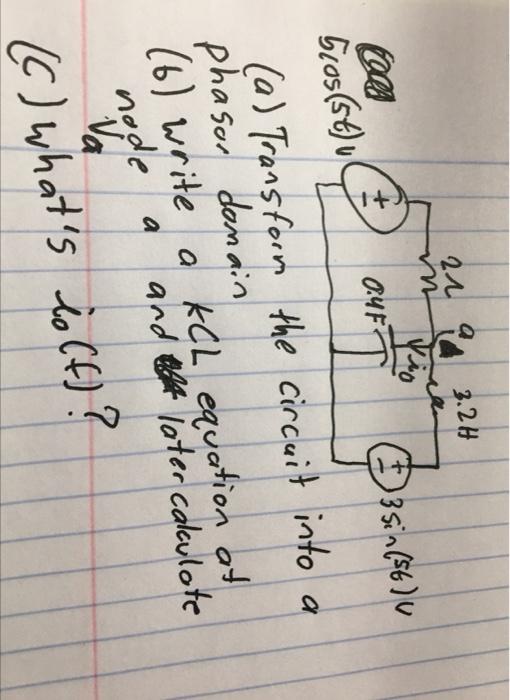 2Ω a 3.2H
5cos(5t)v
0.4F
io
3sin(5t)v
+
-
+
-
(a) Transform the circuit into a
phasor domain
(b) write a KCL equation at
node a and later calculate
Va
(c) what's io(t)?